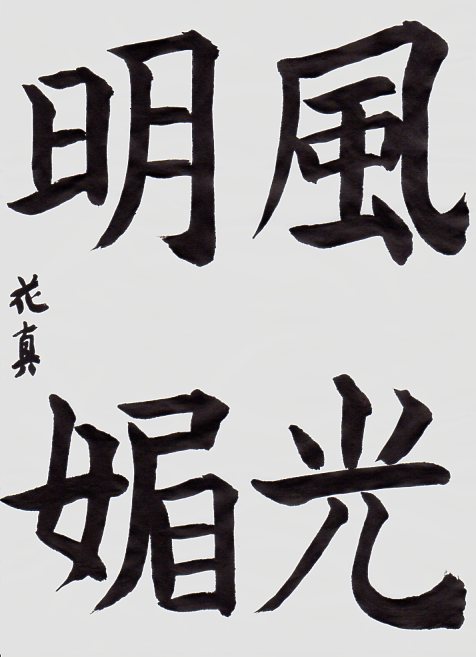 風光
明媚
花真